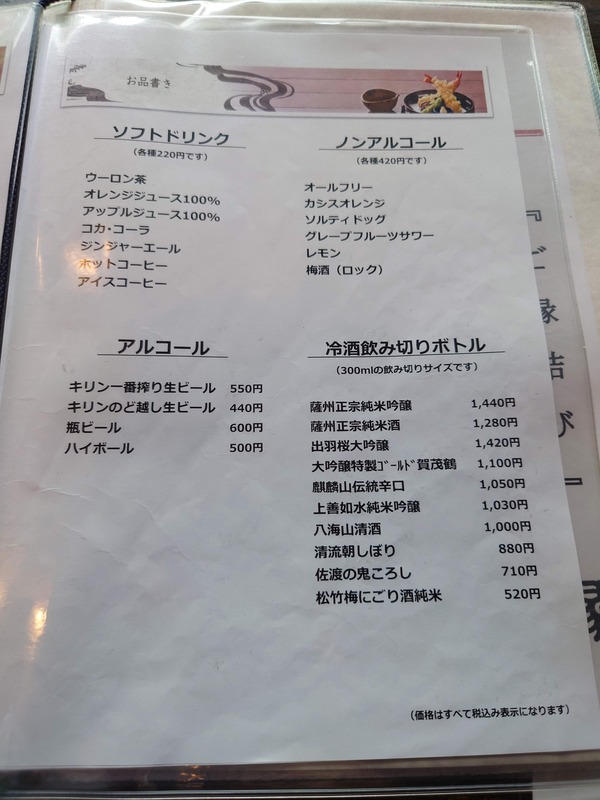 お品書き
ソフトドリンク
（各種220円です）
ウーロン茶
オレンジジュース100%
アップルジュース100%
コカ・コーラ
ジンジャーエール
ホットコーヒー
アイスコーヒー
ノンアルコール
（各種420円です）
オールフリー
カシスオレンジ
ソルティドッグ
グレープフルーツサワー
レモン
梅酒（ロック）
アルコール
キリン一番搾り生ビール 550円
キリンのど越し生ビール 440円
瓶ビール 600円
ハイボール 500円
冷酒飲み切りボトル
（300mlの飲み切りサイズです）
薩州正宗純米吟醸 1,440円
薩州正宗純米酒 1,280円
出羽桜大吟醸 1,420円
大吟醸特製ｺﾞｰﾙﾄﾞ賀茂鶴 1,100円
麒麟山伝統辛口 1,050円
上善如水純米吟醸 1,030円
八海山清酒 1,000円
清流朝しぼり 880円
佐渡の鬼ころし 710円
松竹梅にごり酒純米 520円
（価格はすべて税込み表示になります）
『ご縁結び』